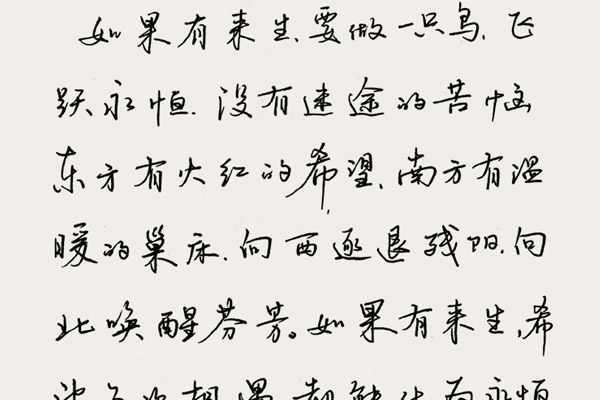 如果有来生.要做一只鸟.飞
跃永恒.没有迷途的苦恼
东方有火红的希望,南方有温
暖的巢床.向西逐退残阳.向
北唤醒芬芳。如果有来生,希
望每次相遇都能化为永恒